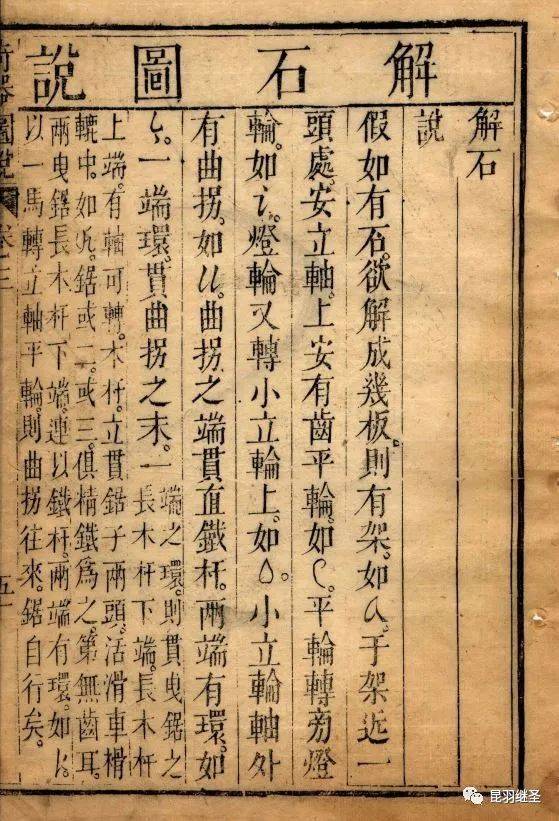 解石圖說
解石
說
假如有石。欲解成幾板。則有架。如。于架近一
頭處。安立軸。上安有齒平輪。如。平輪轉旁燈
輪。如。燈輪又轉小立輪上。如。小立輪軸外
有曲拐。如。曲拐之端貫直鐵杆。兩端有環。如
。一端環。貫曲拐之末。一
端之環。則貫曳鋸之
長木杆下端。長木杆
上端。有軸可轉。木杆。立貫鋸子兩頭。活滑車槽
轆中。如。鋸或二。或三。俱精鐵爲之。第無齒耳。
兩曳鋸長木杆下端。連以鐵杆。兩端有環。如。
以一馬轉立軸平輪。則曲拐往來。鋸自行矣。
圖說 卷三
昆羽继圣